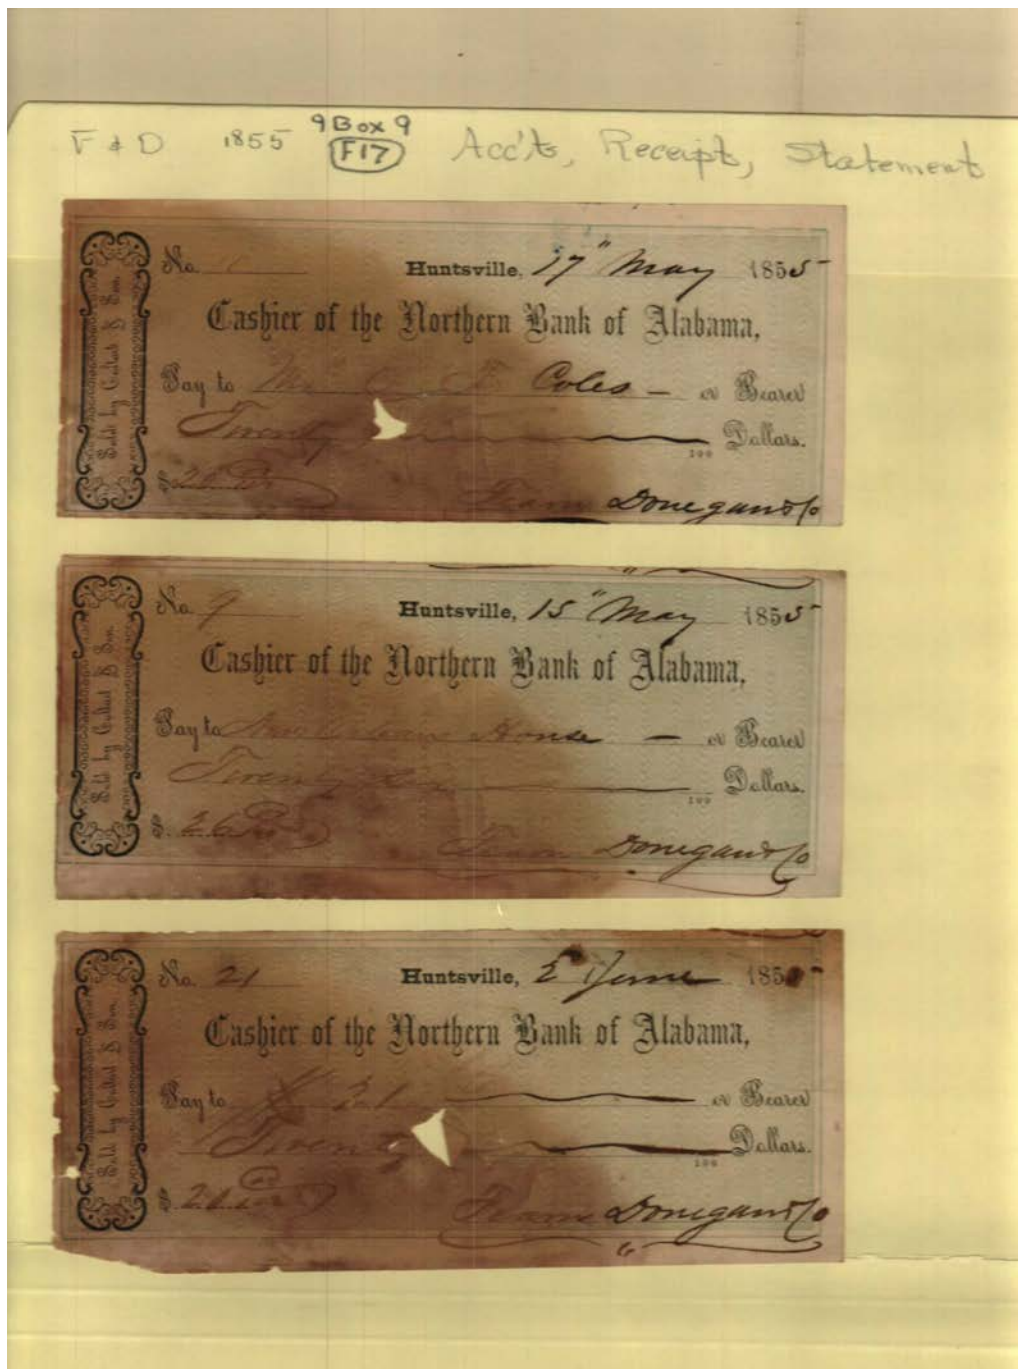 F & D 1855 9 Box 9 Acc'ts, Receipt, Statement
F17
No. Huntsville, 17" May 1855
Cashier of the Northern Bank of Alabama,
Pay to Coles — or Bearer
Twenty Dollars.
100
$
Donegan & Co
Sold by
& Son.
No. 9 Huntsville, 15" May 1855
Cashier of the Northern Bank of Alabama,
Pay to House — or Bearer
Twenty Six Dollars.
100
$ 26
Donegan & Co
Sold by
& Son.
No. 21 Huntsville, 2 June 185
Cashier of the Northern Bank of Alabama,
Pay to 21 or Bearer
Twenty Dollars.
100
$
Donegan & Co
Sold by
& Son.